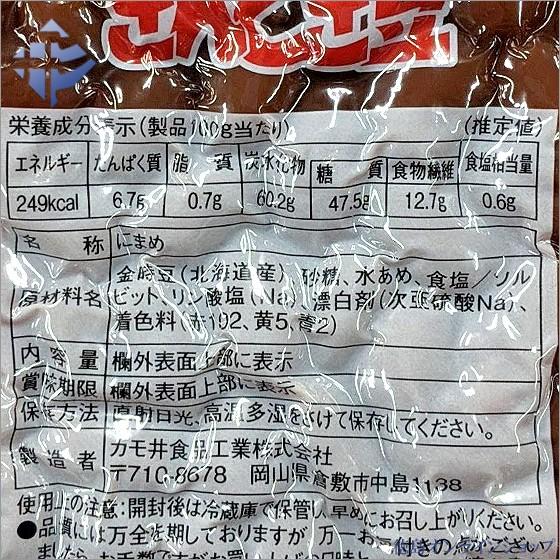 きんとき豆
栄養成分表示(製品100g当たり) (推定値)
エネルギー たんぱく質 脂質 炭水化物 糖質 食物繊維 食塩相当量
249kcal 6.7g 0.7g 60.2g 47.5g 12.7g 0.6g
名称 にまめ
原材料名 金時豆(北海道産)、砂糖、水あめ、食塩/ソル
ビット、リン酸塩(Na)、漂白剤(次亜硫酸Na)、
着色料(赤102、黄5、青2)
内容量 欄外表面上部に表示
賞味期限 欄外表面上部に表示
保存方法 直射日光、高温多湿をさけて保存してください。
製造者 カモ井食品工業株式会社
〒710-8678 岡山県倉敷市中島1138
使用上の注意:開封後は冷蔵庫で保管し、早めにお召し上がりください。
●品質には万全を期しておりますが、万一お気付きの点がござい
ましたら、お手数ですがお買い上げの日時と